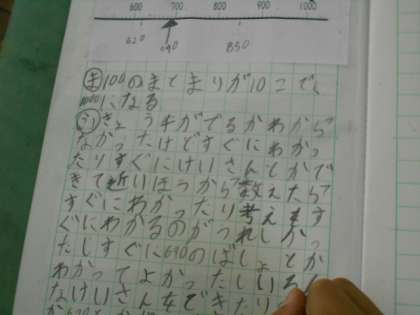 600 700 800 900 1000
620 690 850
ま 100のまとまりが10こで、
1000になる
う きょう手がでるかわから
なかったけどすぐにわかっ
たりすぐにけいさんとかで
きて近いほうから数えたらで
すぐにわかったり考えます
ぐにわかるのがうれしかっ
たしすぐに690のばしょとか
わかってよかったしいろん
なけいさんをできたり